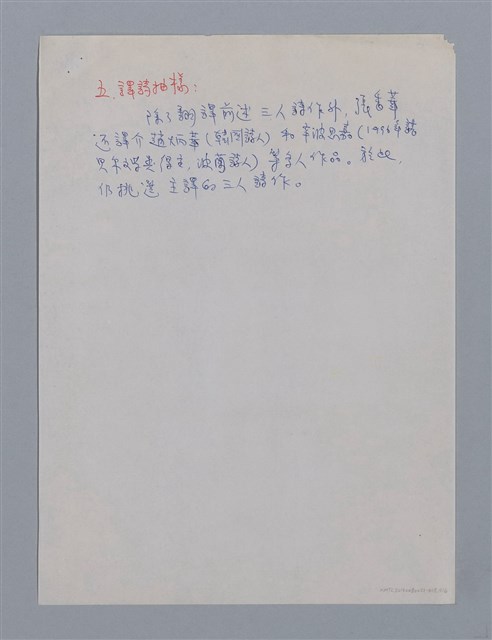 五.譯詩抽樣：
除了翻譯前述三人詩作外，張香華
還譯介趙炳華(韓國詩人)和辛波思嘉(1996年諾
貝尔文學奬得主，波蘭詩人)等多人作品。於此，
仅挑選主譯的三人詩作。